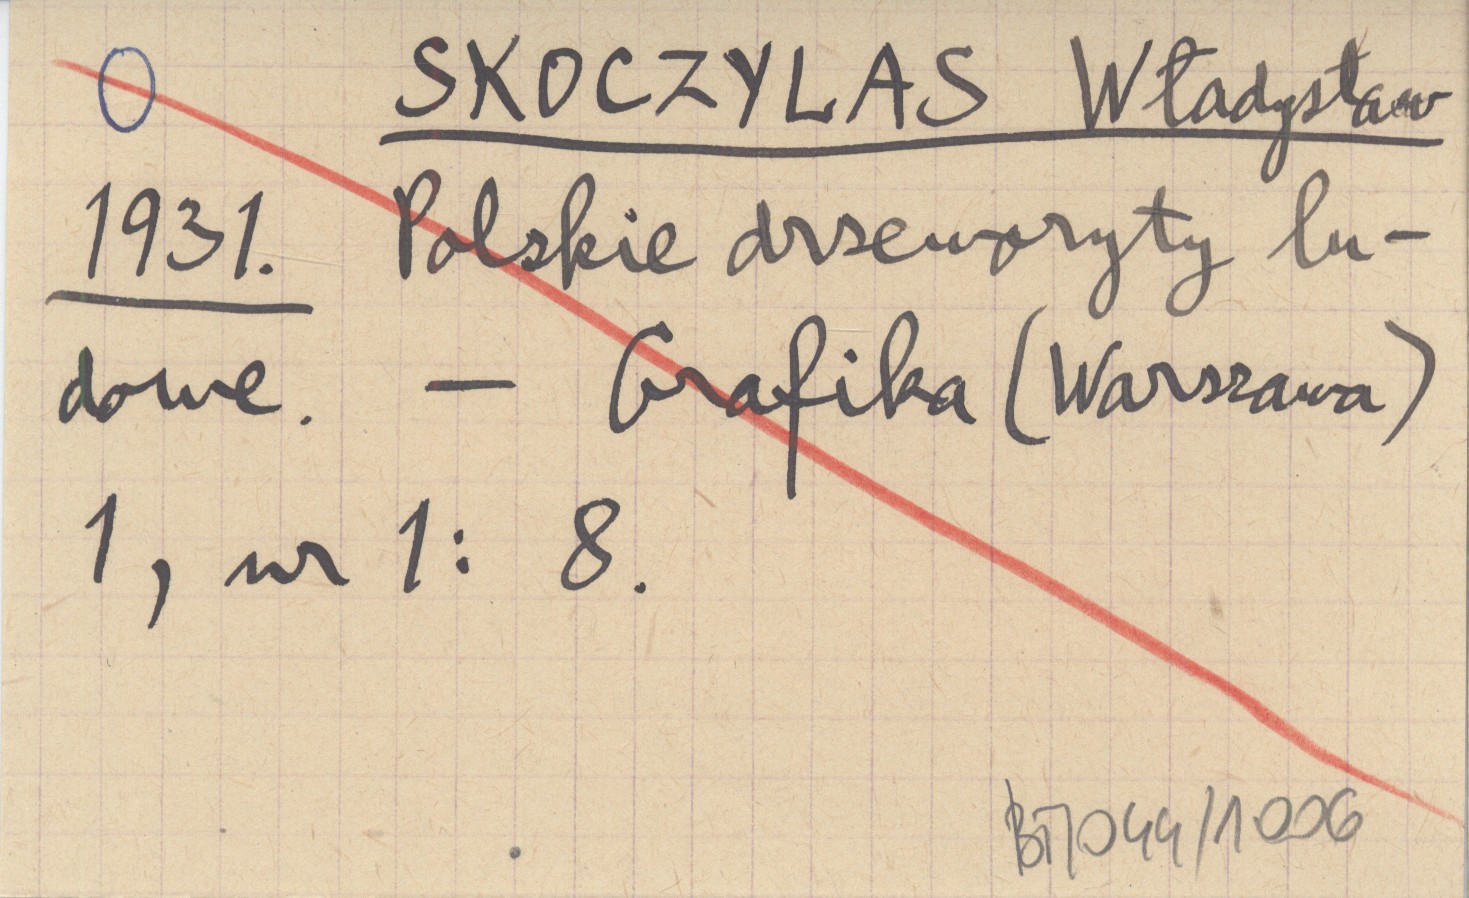 O SKOCZYLAS Władysław
1931. Polskie drzeworyty lu-
dowe. — Grafika (Warszawa)
1, nr 1: 8.
BT/044/1006